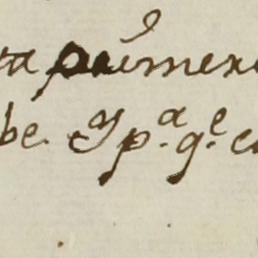 ta primera
be. Y p.ª q.e c